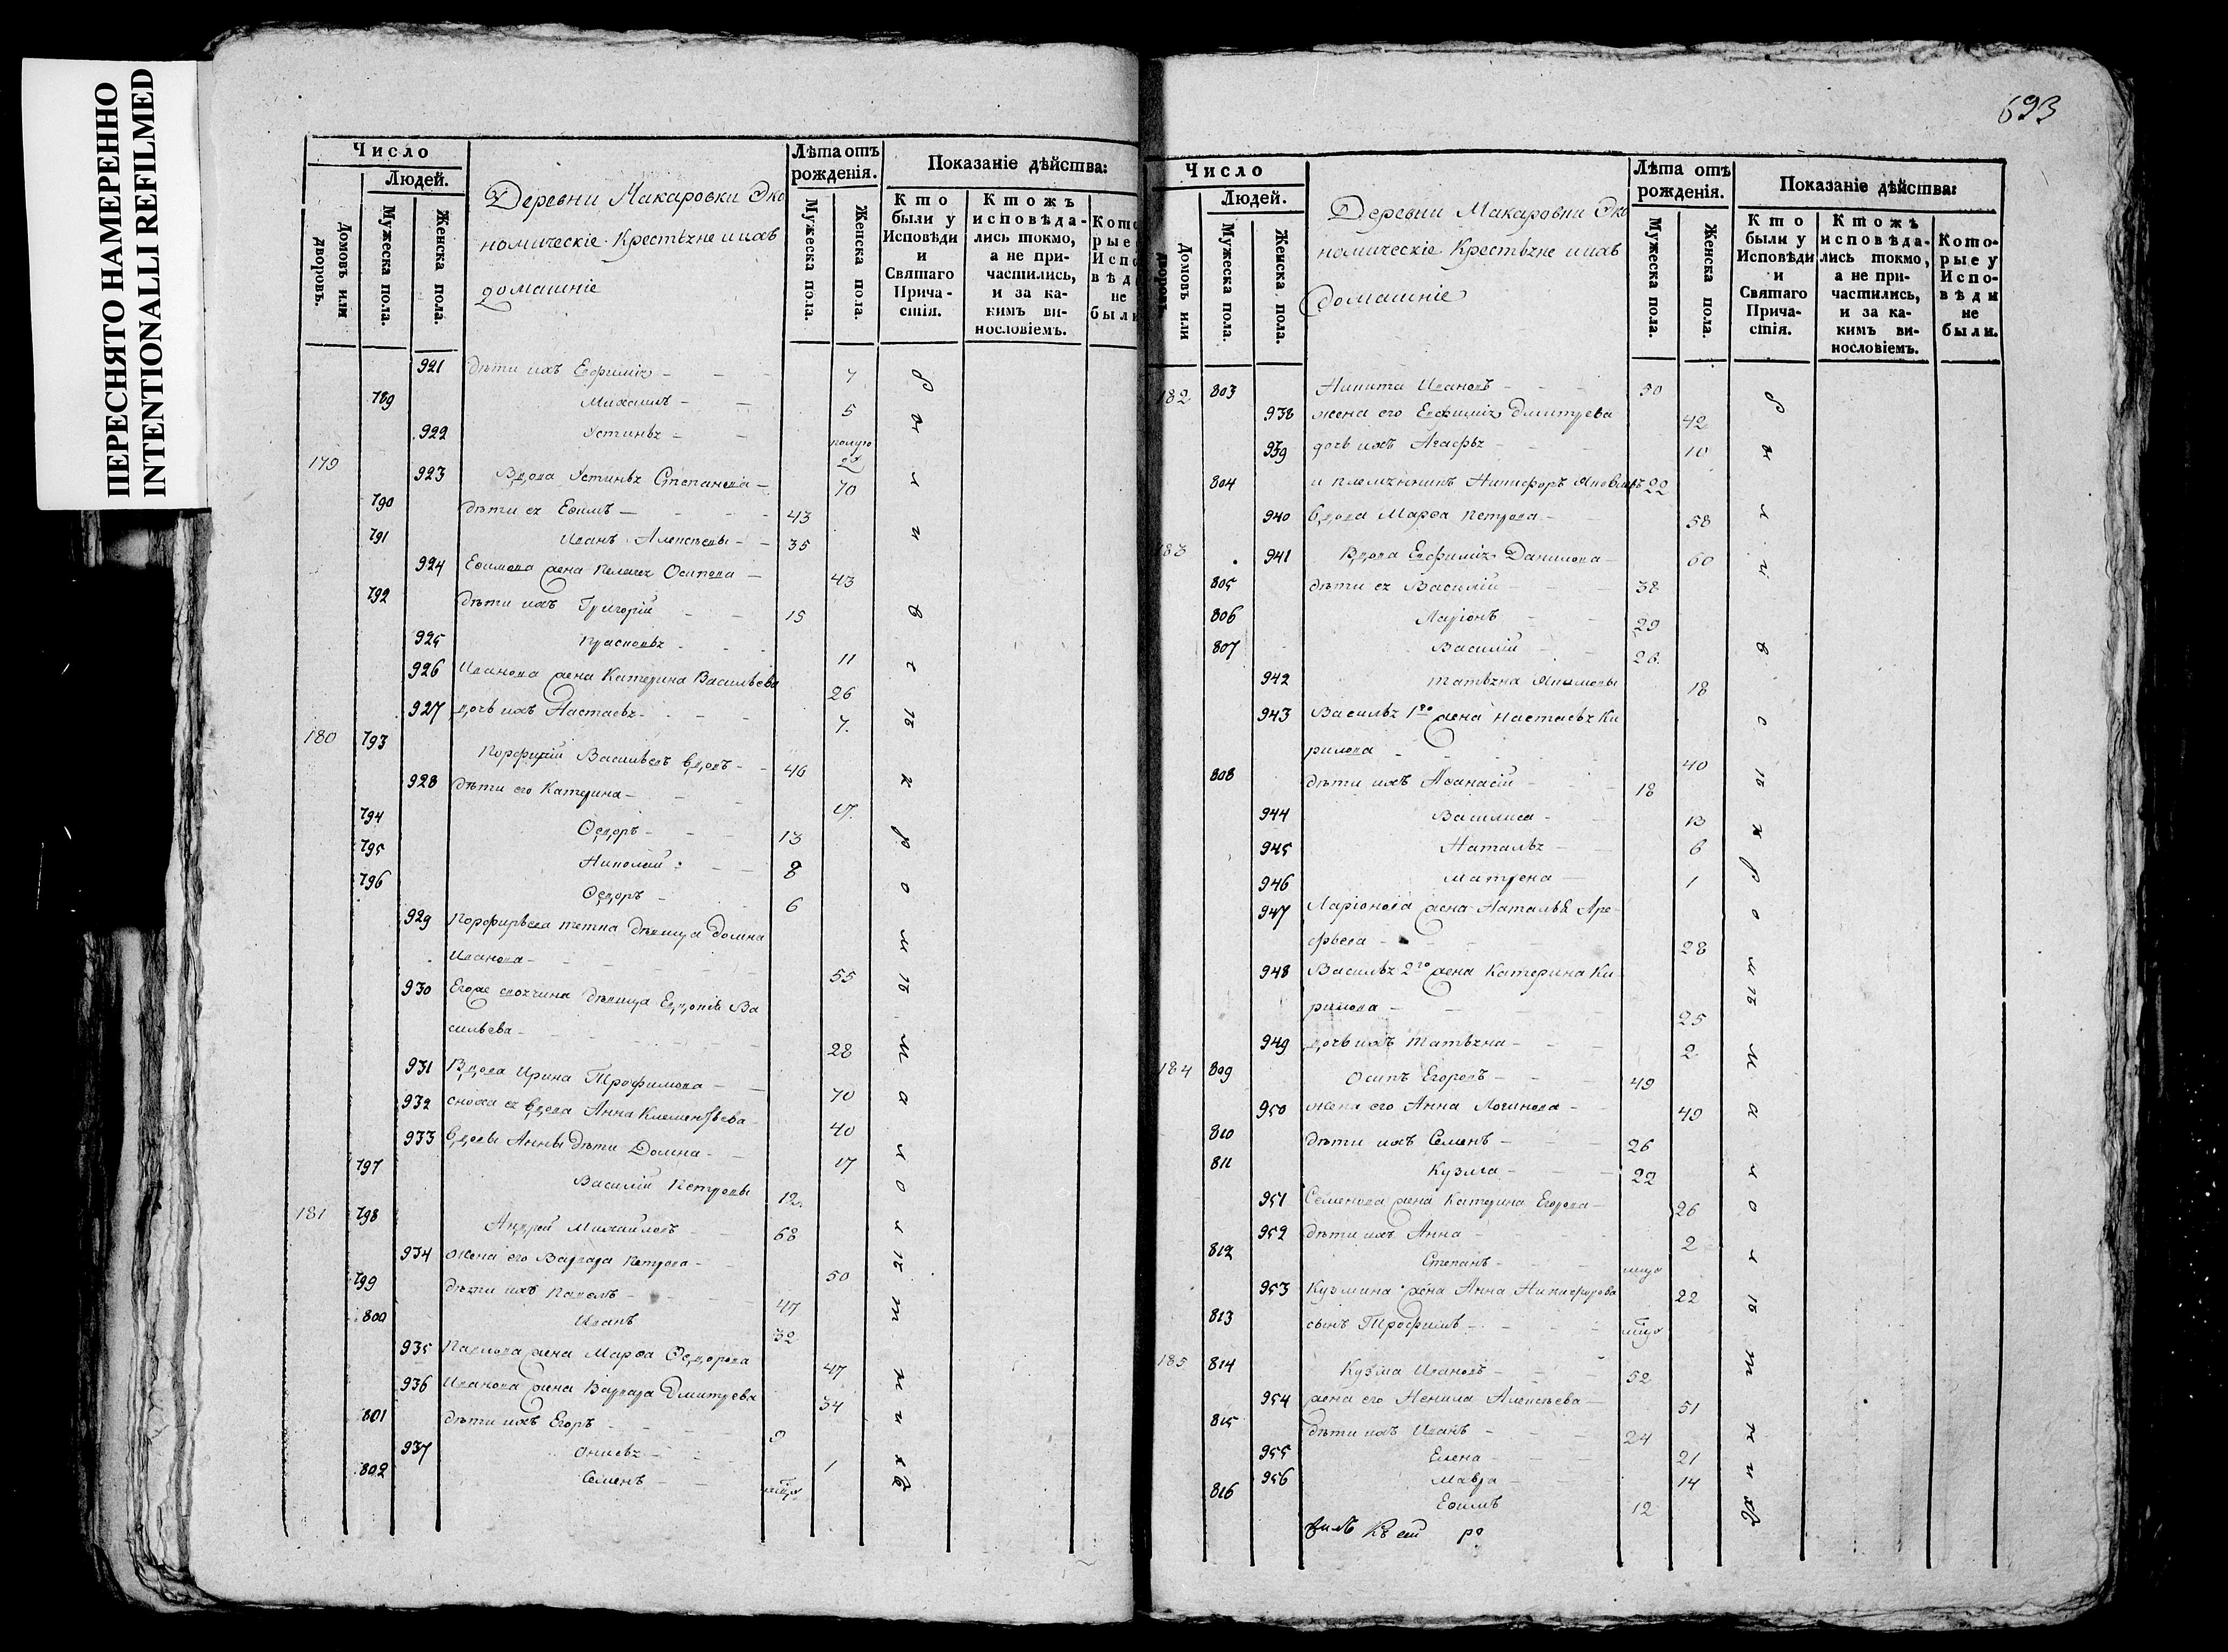 ПЕРЕСНЯТО НАМЕРЕННО
INTENTIONALLI REFILMED
Число
Людей.
Домовъ или дворовъ.
Мужеска пола.
Женска пола.
Деревни Макаровки Эко
номическіе Крестьяне и ихъ
домашніе
Лѣта отъ рожденія.
Мужеска пола.
Женска пола.
Показаніе дѣйства:
Кто были у Исповѣди и Святаго Прича-стія.
Ктожъ исповѣда-лись токмо, а не при-частились, и за ка-кимъ ви-нословіемъ.
921 дѣти ихъ Евфимія 7
789 Михаилъ 5
922 Устинья
179 923 Вдова Устинья Степанова 70
790 дѣти ея Ефимъ 43
791 Иванъ Алексеевы 35
924 Ефимова жена Пелагея Осипова 43
792 дѣти ихъ Григорій 15
925 Прасковья 11
926 Иванова жена Катерина Васильева 26
927 дочь ихъ Настасья 7
180 793 Порфирій Васильевъ вдовъ 46
928 дѣти его Катерина 17
794 Ѳедоръ 13
795 Николай 8
796 Ѳедоръ 6
929 Порфирьева тетка дѣвица Домна
Иванова 55
930 дѣвица Евдокія Ва
сильева 28
931 Вдова Ирина Трофимова 70
932 сноха ея вдова Анна Клементьева 40
933 вдовы Анны дѣти Домна 17
797 Василій Петровы 12
181 798 Андрей Михайловъ 68
934 жена его Варвара Петрова 50
799 дѣти ихъ Павелъ 47
800 Иванъ 32
935 Павлова жена Марѳа Ѳедорова 47
936 Иванова жена Варвара Дмитрева 34
801 дѣти ихъ Егоръ 9
937 Онисья 1
802 Семенъ
693
Число
Людей.
Домовъ или дворовъ.
Мужеска пола.
Женска пола.
Деревни Макаровки Эко
номическіе Крестьяне и ихъ
домашніе
Лѣта отъ рожденія.
Мужеска пола.
Женска пола.
Показаніе дѣйства:
Кто были у Исповѣди и Святаго Прича-стія.
Ктожъ исповѣда-лись токмо, а не при-частились, и за ка-кимъ ви-нословіемъ.
Кото-рые у Испо-вѣди не были.
182 803 Никита Ивановъ 50
938 жена его Евфимія Дмитрева 42
939 дочь ихъ Агафья 10
804 и племянникъ Никифоръ Яковлевъ 22
940 вдова Марѳа Петрова 58
183 941 Вдова Евфимія Данилова 60
805 дѣти ея Василій 38
806 Ларіонъ 29
807 Василій 26
942 Татьяна 18
943 Василья 1го жена Настасья Ки
рилова 40
808 дѣти ихъ Аѳанасій 18
944 Василиса 13
945 Наталья 6
946 Матрена 1
947 Ларіонова жена Наталья Аре
фьева 28
948 Василья 2го жена Катерина Ки
рилова 25
949 дочь ихъ Татьяна 2
184 809 Осипъ Егоровъ 49
950 жена его Анна Логинова 49
810 дѣти ихъ Семенъ 26
811 Кузма 22
951 Семенова жена Катерина Егорова 26
952 дѣти ихъ Анна 2
812 Степанъ
953 Кузмина жена Анна Никифорова 22
813 сынъ Трофимъ
185 814 Кузма Ивановъ 52
954 жена его Ненила Алексеева 51
815 дѣти ихъ Иванъ 24
955 Елена 21
956 Мавра 14
816 Ефимъ 12